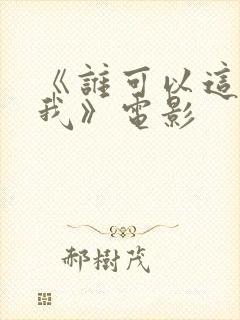 《誰可以這
我》電影
郝樹茂